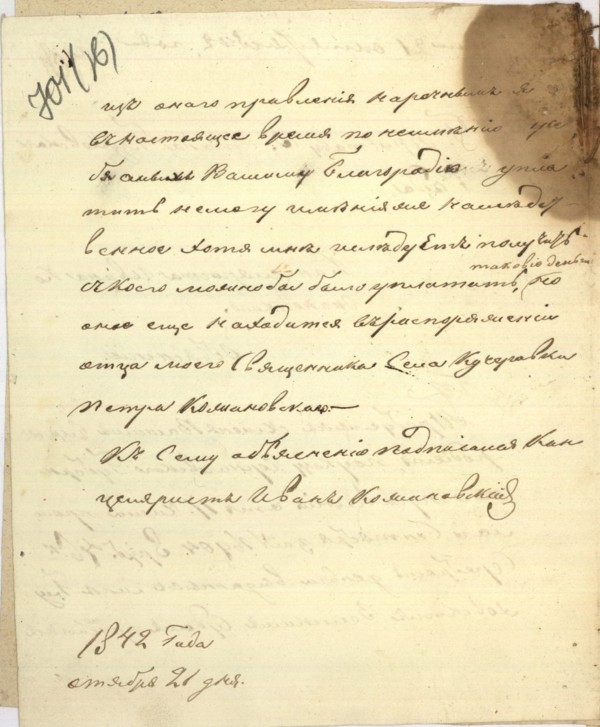 изъ онаго правленія нарочнымъ я
въ настоящее время по неимѣнію
Вашему Благородію упла
тить немогу имѣніяже наслѣдс
венное хотя мнѣ и слѣдуетъ получить
таковіе деньги
съ коего можно бы было уплатить, но
оное еще находится въ распоряженіи
отца моего Священника Села Кучеровки
Петра Комановскаго.—
Къ сему объясненію подписался Кан
целяристъ Иванъ Комановскій
1842 Года
октября 21 дня.